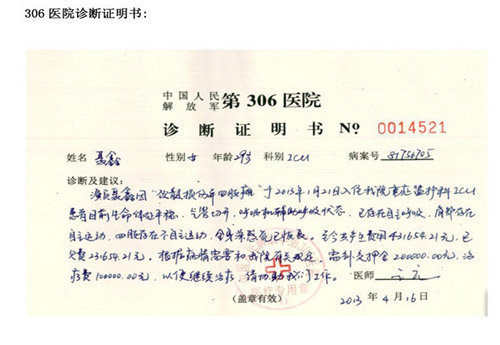 306医院诊断证明书:
中国人民
解放军 第306医院
诊断证明书 Nº 0014521
姓名 聂鑫 性别 女 年龄 29岁 科别 ICU 病案号
诊断及建议:
于2013年1月21日入住我院重症监护科ICU
患者目前生命体征平稳,气管切开,呼吸机辅助呼吸状态,已存在自主呼吸,肩部存在
自主运动,四肢存在不自主运动,全身感觉已恢复。至今共产生费用431654.21元,已
欠费231654.21元。根据病情需要和医院有关规定,需补交押金200000.00元,治
疗费100000.00元,以便继续治疗,请协助我们工作。
医师
(盖章有效) 医疗专用章
2013年4月16日